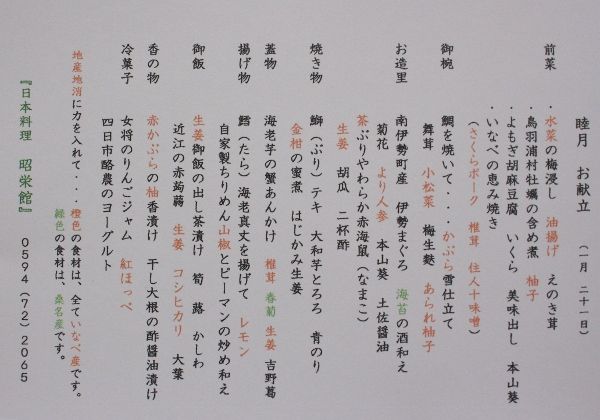 睦月　お献立　（一月　二十一日）
前菜　・水菜の梅浸し　油揚げ　えのき茸
・鳥羽浦村牡蠣の含め煮　柚子
・よもぎ胡麻豆腐　いくら　美味出し　本山葵
・いなべの恵み焼き
（さくらポーク　椎茸　住人十味噌）
御椀　鯛を焼いて・・・かぶら雪仕立て
舞茸　小松菜　梅生麩　あられ柚子
お造里　南伊勢町産　伊勢まぐろ　海苔の酒和え
菊花　より人参　本山葵　土佐醤油
茶ぶりやわらか赤海鼠（なまこ）
生姜　胡瓜　二杯酢
焼き物　鰤（ぶり）テキ　大和芋とろろ　青のり
金柑の蜜煮　はじかみ生姜
蓋物　海老芋の蟹あんかけ　椎茸　春菊　生姜　吉野葛
揚げ物　鱈（たら）海老真丈を揚げて　レモン
自家製ちりめん山椒とピーマンの炒め和え
御飯　生姜御飯の出し茶漬け　筍　蕗　かしわ
近江の赤蒟蒻　生姜　コシヒカリ　大葉
香の物　赤かぶらの柚香漬け　干し大根の酢醤油漬け
冷菓子　女将のりんごジャム　紅ほっぺ
四日市酪農のヨーグルト
地産地消に力を入れて・・・橙色の食材は、全ていなべ産です。
緑色の食材は、桑名産です。
『日本料理　昭栄館』　０５９４（７２）２０６５